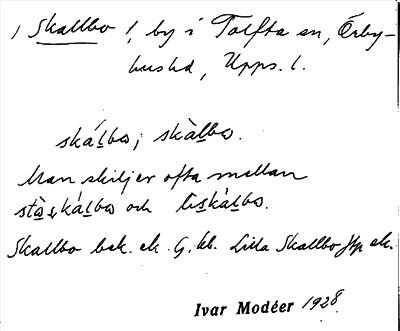 / Skallbo /, by i Tolfta sn, Örby-
hus hd, Upps. l.
skálbo; skàlbo.
Man skiljer ofta mellan
stòskálbo och liskálbo.
Skallbo bek. ek. G. kb. Lilla Skallbo Jfp ek.
Ivar Modéer 1928.